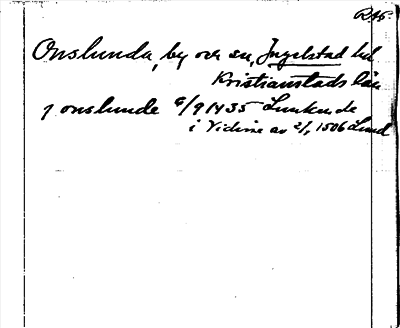 RAp.
Onslunda, by och sn, Ingelstad hd
Kristianstads län
j onslunde 6/9 1435 Lunkunde
i Vidime av 2/1 1506 Lund